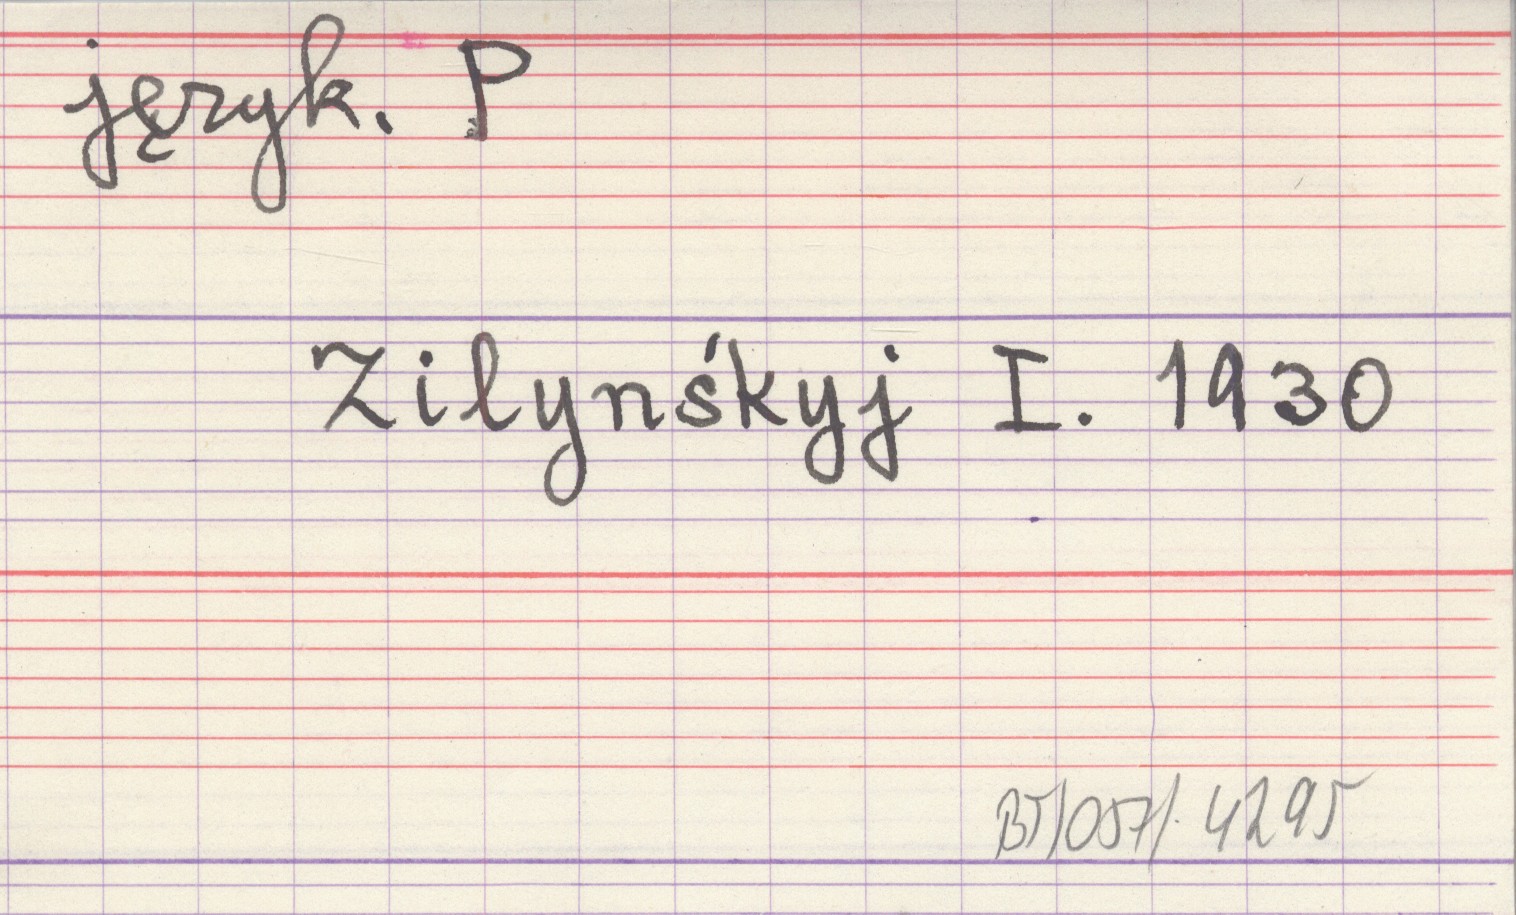 język. P
Zilynśkyj I. 1930
BT/057/. 4295